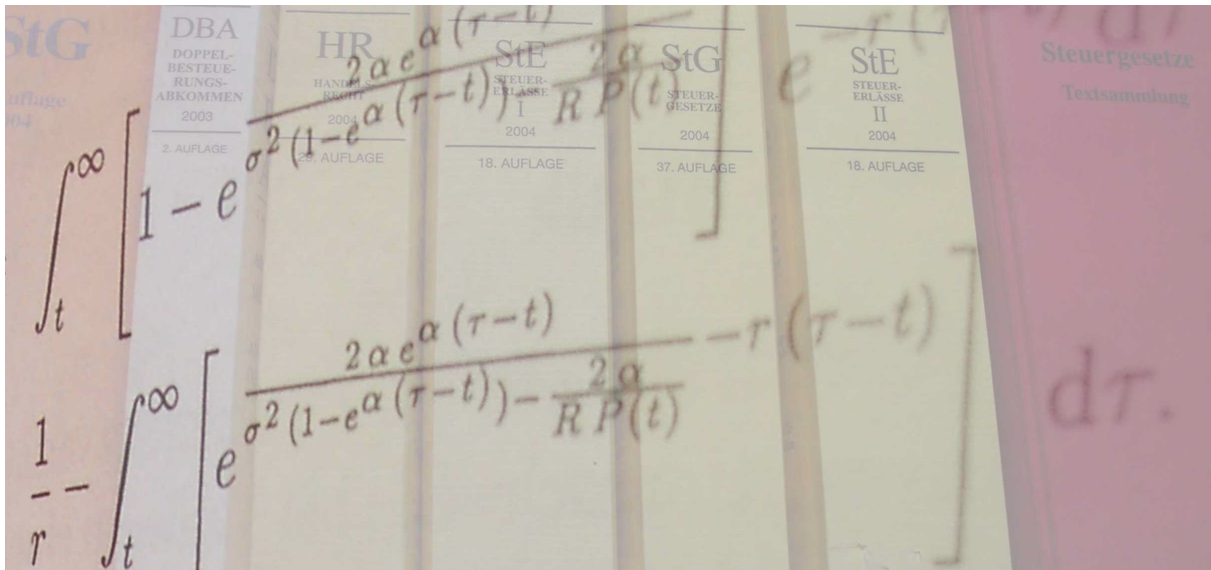 StG
DBA
DOPPEL-
BESTEUE-
RUNGS-
ABKOMMEN
2003
2. AUFLAGE
HR
HANDELS-
RECHT
2004
AUFLAGE
StE
STEUER-
ERLÄSSE
I
2004
18. AUFLAGE
StG
STEUER-
GESETZE
2004
37. AUFLAGE
StE
STEUER-
ERLÄSSE
II
2004
18. AUFLAGE
Steuergesetze
Textsammlung
∫_t^∞ [1 − e^{\frac{2 α e^{α (τ−t)}}{σ^2 (1−e^{α (τ−t)}) − \frac{2 α}{R P(t)}}}] e^{−r (τ−t)} dτ
\frac{1}{r} − ∫_t^∞ [e^{\frac{2 α e^{α (τ−t)}}{σ^2 (1−e^{α (τ−t)}) − \frac{2 α}{R P(t)}} −r (τ−t)}] dτ.